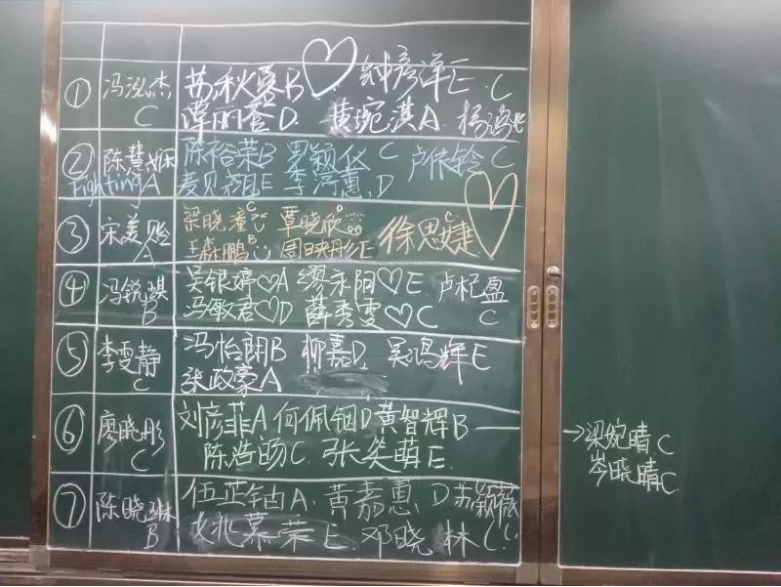 ① 冯泓杰 C
苏秋蓉B ♡ 钟彦洋E C
谭丽蓉D 黄琬淇A
② 陈慧妍 A
Fighting
陈裕荣B 罗颖仪 C 卢依铃 C
李淳惠 D
③ 宋美贻 A
梁晓潼 C 覃晓欣 D 徐思婕 C ♡
王森鹏 B 周映彤 E
④ 冯锐琪 B
吴银婷♡A 缪永阳♡E 卢杞盈 C
冯敏君♡D 薛秀雯♡C
⑤ 李雯静 C
冯怡朗B 柳嘉D 吴鸿辉E
张政豪A
⑥ 廖晓彤 C
刘彦菲A 何佩钿D 黄智辉B → 梁婉晴 C
陈浩旸C 张奂萌E 岑晓晴C
⑦ 陈晓琳 B
伍芷钴A 黄嘉惠 D 苏颖薇 C
姚慕荣E 邓晓林C